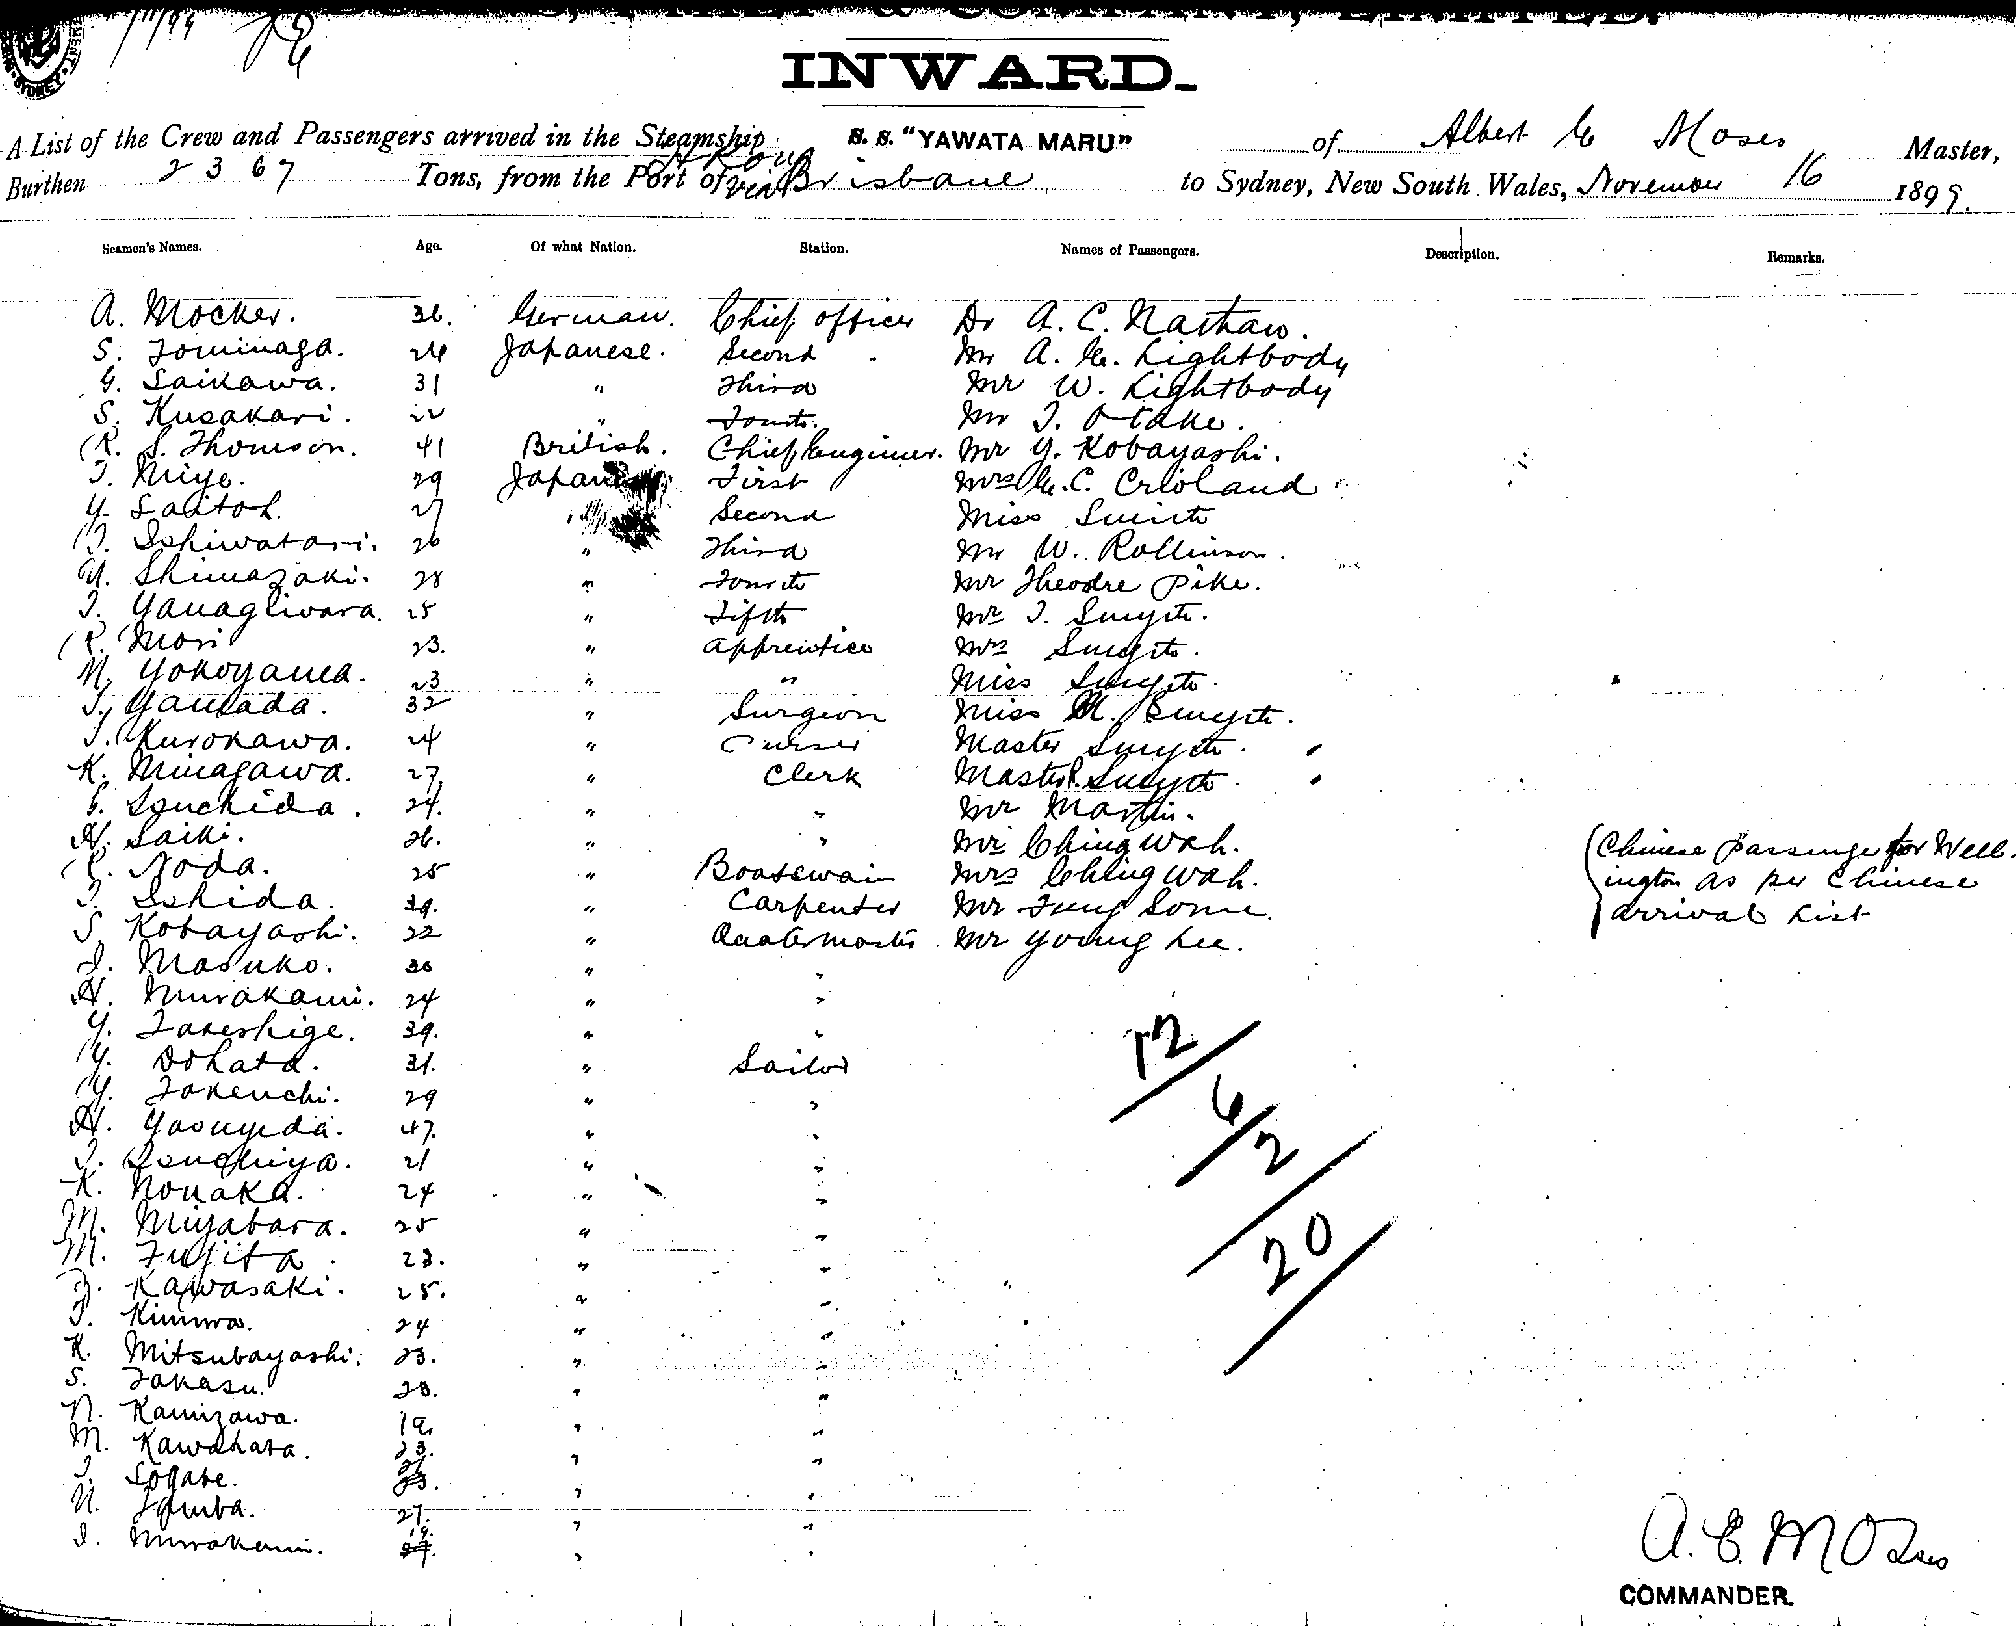 INWARD.
A List of the Crew and Passengers arrived in the Steamship S. S. "YAWATA MARU" of Albert E Moses Master,
Burthen 2367 Tons, from the Port of H Kong via Brisbane to Sydney, New South Wales, November 16 1899.
Seamen's Names. Age. Of what Nation. Station. Names of Passengers. Description. Remarks.
A. Mocker. 36. German. Chief officer Dr A. C. Nathan.
S. Tominaga. 26 Japanese. Second Mr A. E. Lightbody
G. Saikawa. 31 " Third Mr W. Lightbody
S. Kusakari. 22 " Fourth. Mr T. Otake.
R. S. Thomson. 41 British. Chief Engineer. Mr Y. Kobayashi.
T. Miye. 29 Japanese First Mrs E. C. Crioland
Y. Saitoh. 27 " Second Miss
T. Ishiwatari. 26 " Third Mr W. Rollinson.
Y. Shimazaki. 28 " Fourth Mr Theodre Pike.
T. Yanagiwara. 25 " Fifth Mr T. Smyth.
R. Mori 23. " Apprentice Mrs Smyth.
N. Yokoyama. 23 " " Miss Smyth.
T. Yamada. 32 " Surgeon Miss M. Smyth.
T. Kurokawa. 24 " Purser Master Smyth.
K. Minagawa. 27. " Clerk Master Smyth.
S. Tsuchida. 24. " " Mr Martin.
H. Saiki. 26. " " Mr Ching Wah.
K. Noda. 25 " Boatswain Mrs Ching Wah.
T. Ishida. 39. " Carpenter Mr Fung Some.
S Kobayashi. 22 " Quatermaster Mr Young Lee.
(Chinese passenger for Well-
ington as per Chinese
arrival List
I. Masuko. 30 " "
H. Murakami. 24 " "
Y. Takeshige. 39. " "
Y. Dohata. 31. " Sailor
Y. Takeuchi. 29 " "
H. Yasuyeda. 47. " "
T. Tsuchiya. 21 " "
K. Nonaka. 24 " "
M. Miyabara. 25 " "
M. Fujita. 23. " "
Z. Kawasaki. 25. " "
T. Kimura. 24 " "
K. Mitsubayashi. 23. " "
S. Takasu. 28. " "
N. Kamizawa. 19. " "
M. Kawahata. 23. " "
T. Sogabe. " "
U. Namba. 27. " "
I. Murakami. 19. " "
12/
6/2
/20
A. E. Moses
COMMANDER.